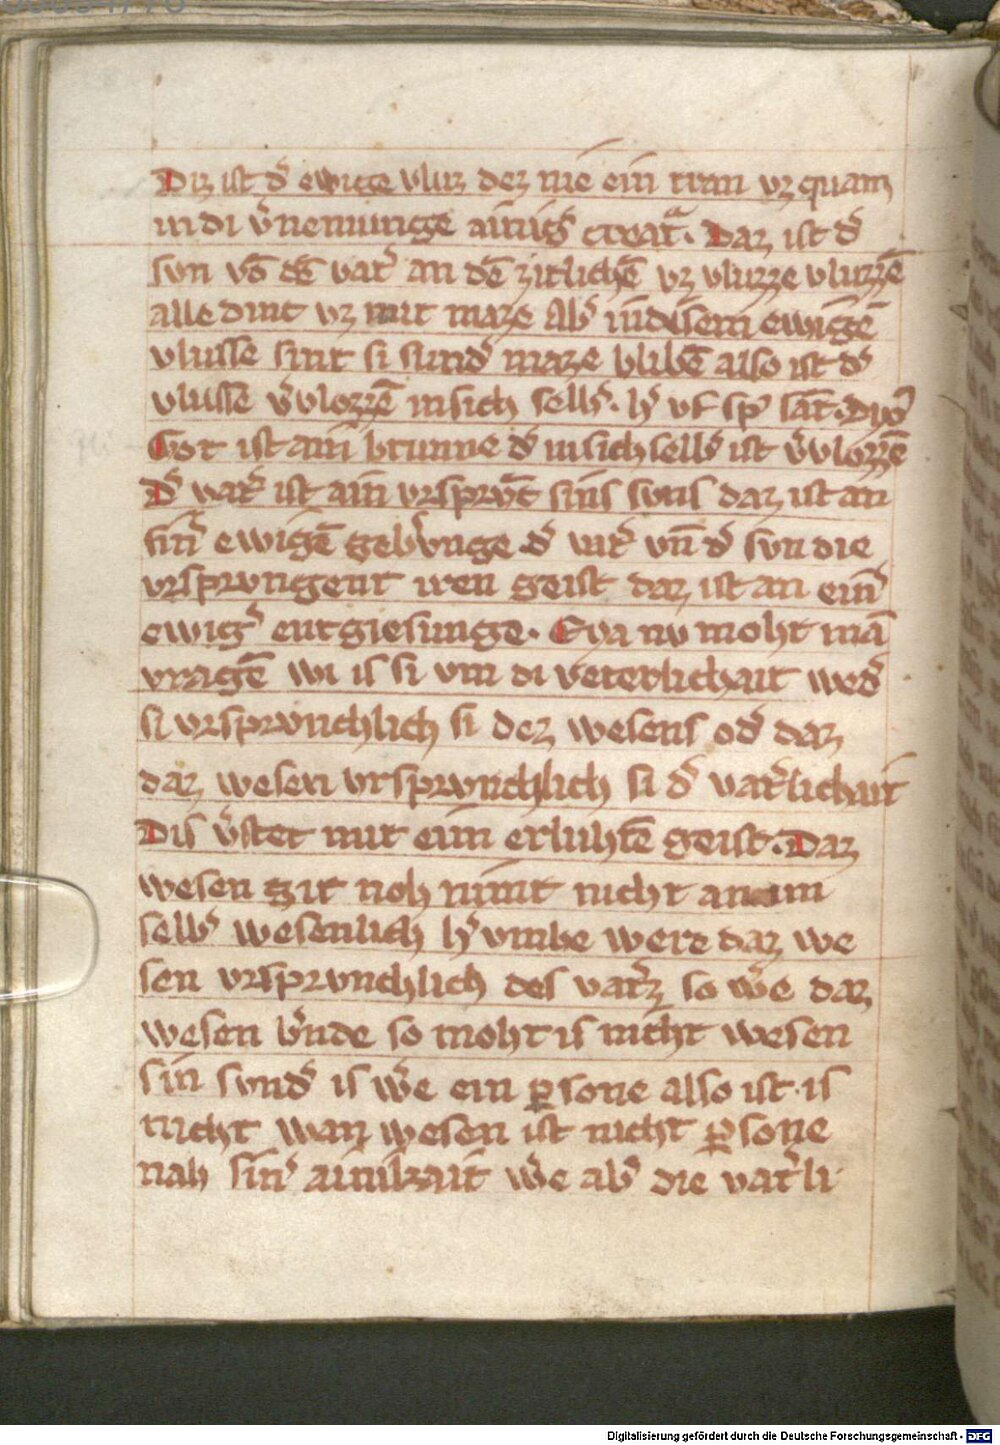 Diz ist d̕ ewige vluz dez nie ein tran vz quam
in di v̕nemunge ainig̕ creatᵃ. Daz ist d̕
svn vō dē vat̕ an dē zitlichē vz vluzze vluzzē
alle dinc vz mit maze Ab̕ in disem ewigē
vlusse sint si sund̕ maze blibē also ist d̕
vlusse v̕vlozzē in sich selb̕. h̕ vf sp̕ sāt. dyo̕
Got ist ain brunne d̕ in sich selb̕ ist v̕vlozzē
D̕ vat̕ ist ain vrsprvc̄ sins svns daz ist an
sin̕ ewigē geb̕vnge d̕ vat̕ vn̄ d̕ svn die
vrsprvngent iren geist daz ist an ein̕
ewig̕ entgiesunge. Eya nv moht mā
vragē wi is si vm di veterlichait wed̕
si vrsprvnchlich si dez wesens od̕ daz
daz wesen vrsprvnchlich si d̕ vat̕lichait
Dis v̕stet nut ein erluhtē geist. Daz
wesen git noh nimt nicht an im
selb̕ wesenlich h̕ vmbe were daz we
sen vrsprvnchlich des vat̕z so w̕e daz
wesen b̕nde so moht is nicht wesen
sin svnd̕ is w̕e ein ꝑsone also ist is
nicht waz wesen ist nicht ꝑsone
nah sin̕ ainikait w̕e ab̕ die vat̕li
Digitalisierung gefördert durch die Deutsche Forschungsgemeinschaft - DFG